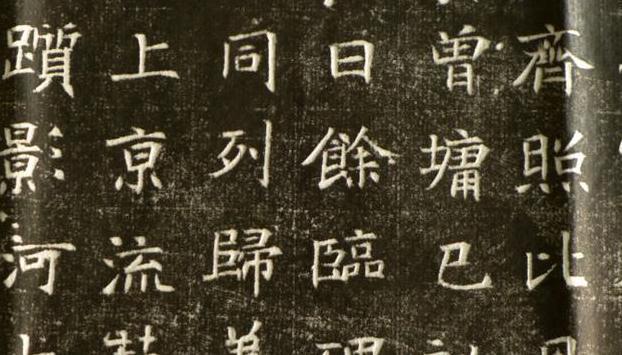 齊照比
曾墉已
日餘臨
同列歸
上京流
躓影河